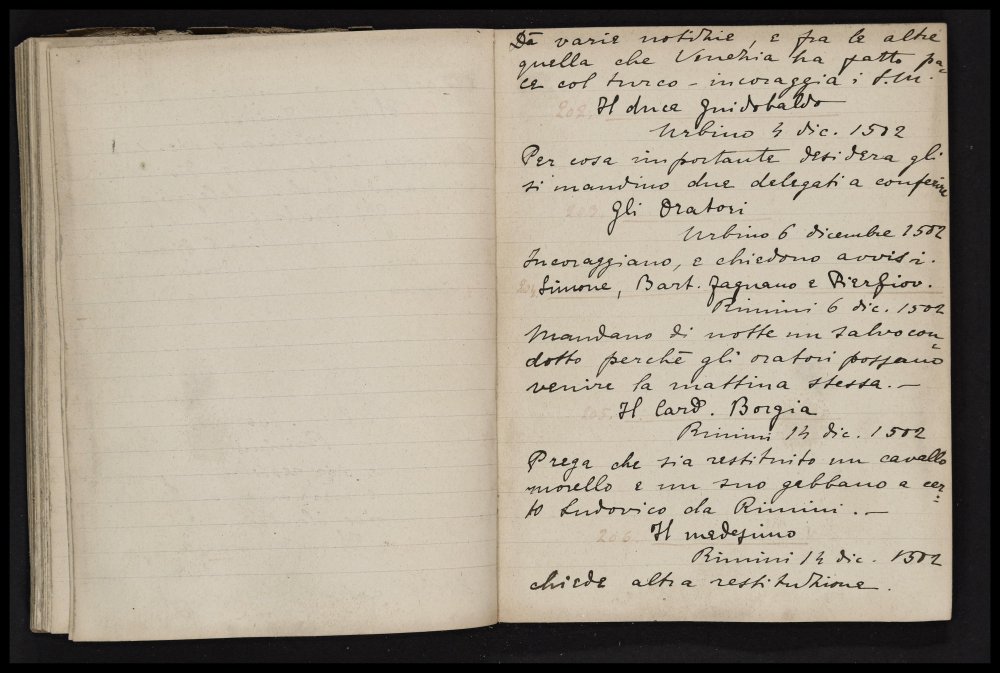 Dà varie notizie, e fra le altre
quella che Venezia ha fatto pa=
ce col turco - incoraggia i S.M.
202. Il duca Guidobaldo
Urbino 4 dic. 1502
Per cosa importante desidera gli
si mandino due delegati a conferire
203. Gli Oratori
Urbino 6 dicembre 1502
Incoraggiano, e chiedono avvisi.
204. Simone, Bart. Fagnano e PierGiov.
Rimini 6 dic. 1502
Mandano di notte un salvocon=
dotto perchè gli oratori possano
venire la mattina stessa. —
205. Il Card. Borgia
Rimini 14 dic. 1502
Prega che sia restituito un cavallo
morello e un suo gabbano a cer=
to Ludovico da Rimini. —
206. Il medesimo
Rimini 14 dic. 1502
chiede altra restituzione.